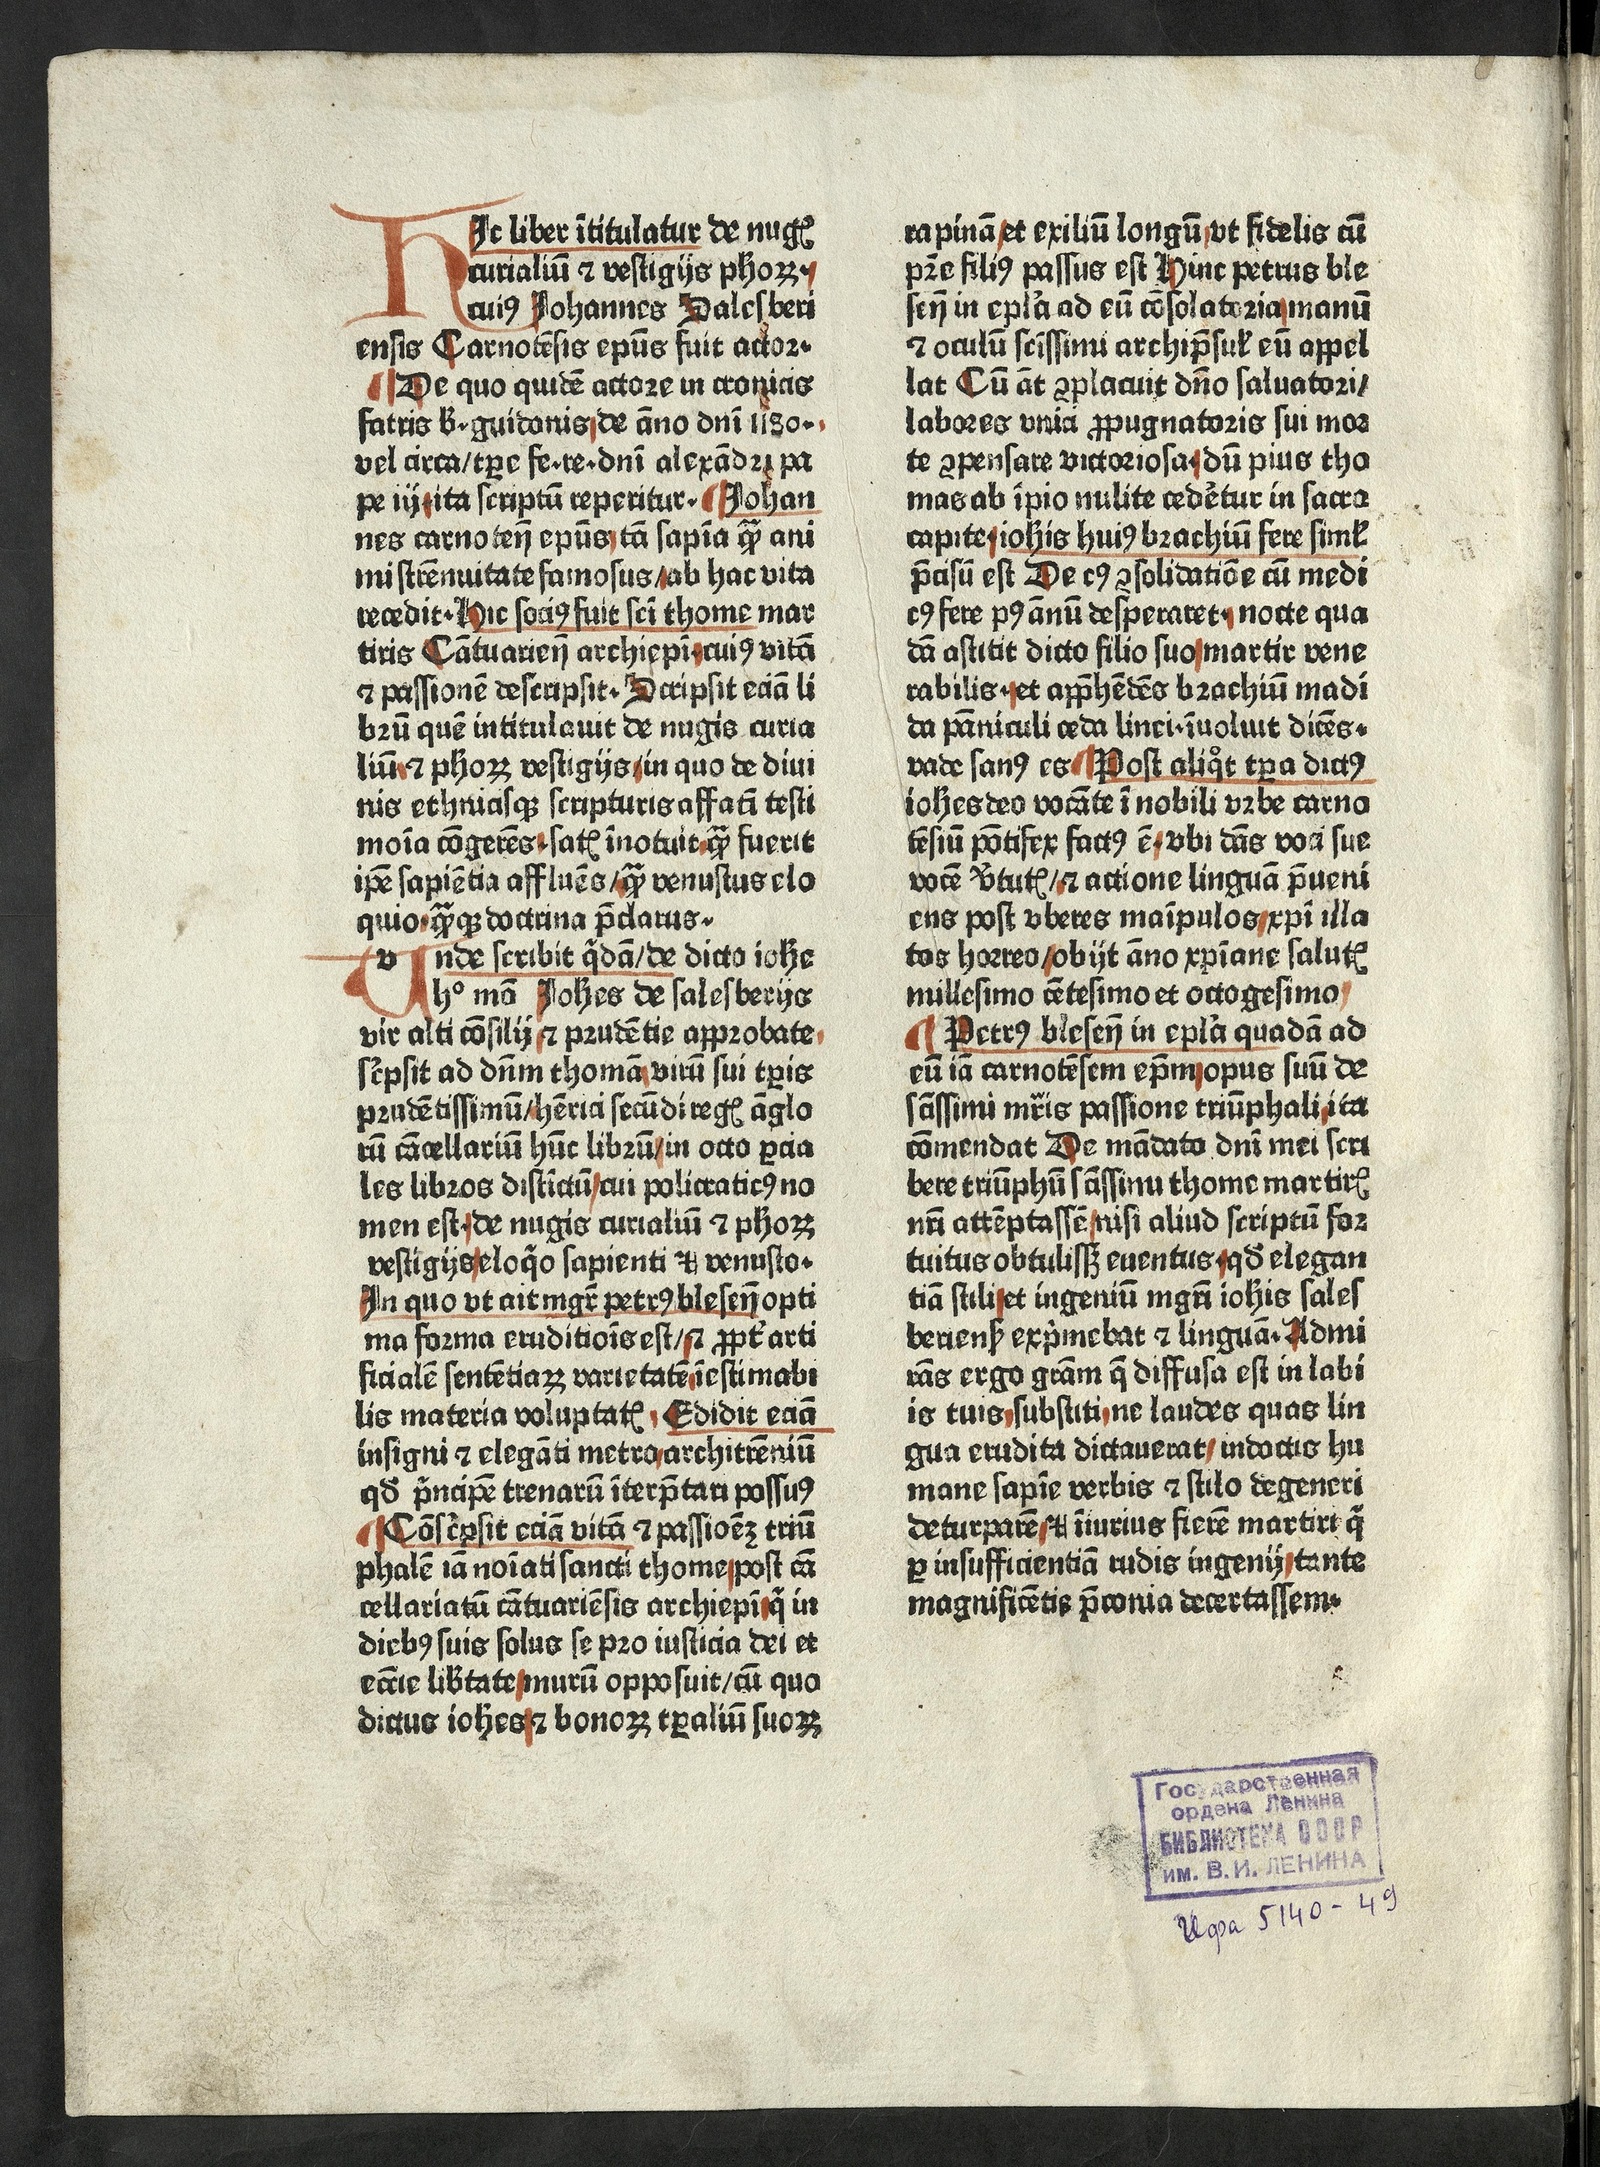 HIc liber ītitulatur de nugꝭ
curialiū ⁊ vestigijs phoꝝ·
cuiꝰ Johannes Salesberi
ensis Carnotēsis ep̄us fuit actor·
De quo quidē actore in cronicis
fatris b·guidonis de āno dnī 1180·
vel circa/tꝑe fe·re·dnī alexādri pa
pe iij ita scriptū reperitur· Johan
nes carnoteñ ep̄us tā sapīa q̄ꝫ ani
mi strēnuitate famosus/ab hac vita
recedit· Hic sociꝰ fuit scī thome mar
tiris Cātuarieñ archiepī cuiꝰ vitā
⁊ passionē descripsit· Scripsit eciā li
brū quē intitulauit de nugis curia
liū ⁊ phoꝝ vestigijs in quo de diui
nis ethnicisqꝫ scripturis affatī testi
moīa cōgerēs· satꝭ īnotuit q̄ꝫ fuerit
ipē sapiētia affluēs/q̄ꝫ venustus elo
quio·q̄ꝫqꝫ doctrina p̄clarus·
Vnde scribit q̄dā/de dicto ioħe
h° mō Joħes de salesberijs
vir alti cōsilij ⁊ prudētie approbate
sc̄psit ad dn̄m thomā virū sui tꝑis
prudētissimū/hērici secūdi regꝭ āglo
rū cācellariū hūc librū/in octo ꝑcia
les libros distīctū/cui policraticꝰ no
men est·de nugis curialiū ⁊ phoꝝ
vestigijs eloq̄o sapienti ⁊ venusto·
In quo vt ait mgr̄ petrꝰ bleseñ opti
ma forma eruditiōis est/⁊ ꝓpt̄ arti
ficialē sentētiaꝝ varietatē īestimabi
lis materia voluptatꝭ Edidit eciā
insigni ⁊ elegāti metro architrēniū
qđ p̄ncipē trenarū īterp̄tari possuꝰ
Cōsc̄psit eciā vitā ⁊ passiōeꝫ triū
phalē iā noīati sancti thome post cā
cellariatū cātuariēsis archiepī q̄ in
diebꝰ suis solus se pro iusticia dei et
eccīe lib̄tate murū opposuit/cū quo
dictus ioħes ⁊ bonoꝝ tꝑaliū suoꝝ
rapinā et exiliū longū vt fidelis cū
pr̄e filiꝰ passus est Hinc petrus ble
señ in epl̄a ad eū cōsolatoria manū
⁊ oculū scīssimi archip̄suł eū appel
lat Cū āt ꝯplacuit dn̄o saluatori/
labores vnici ꝓpugnatoris sui mor
te ꝯpensare victoriosa·dū pius tho
mas ab īpio milite cedētur in sacro
capite ioħis huiꝰ brachiū fere simł
p̄cisū est De cꝰ ꝯsolidatiōe cū medi
cꝰ fere pꝰ ānū desꝑeraret· nocte qua
dā astitit dicto filio suo martir vene
rabilis·et app̄hēdēs brachiū madi
da pāniculi ceda linci·īuoluit dicēs·
vade sanꝰ es Post aliq̊t tꝑa dictꝰ
ioħes deo vocāte ī nobili vrbe carno
tēsiū pōtifex factꝰ ē·vbi dās voci sue
vocē v̄tutꝭ/⁊ actione linguā p̄ueni
ens post vberes maīpulos xp̄i illa
tos horreo/obijt āno xp̄iane salutꝭ
millesimo cētesimo et octogesimo
Petrꝰ bleseñ in epl̄a quadā ad
eū iā carnotēsem ep̄m opus suū de
scāssimi mr̄is passione triūphali ita
cōmendat De mādato dnī mei scri
bere triūphū scāssimi thome martirꝭ
nrī attēptassē nisi aliud scriptū for
tuitus obtulissꝫ euentus·qđ elegan
tiā stili et ingeniū mgrī ioħis sales
berienẜ exp̄mebat ⁊ linguā· Admi
rās ergo grām q̄ diffusa est in labi
is tuis substiti ne laudes quas lin
gua erudita dictauerat/indoctis hu
mane sapīe verbis ⁊ stilo degeneri
deturparē ⁊ īiurius fierē martiri q̄
ꝑ insufficientiā rudis ingenij tante
magnificētie p̄conia decertassem·
Государственная
ордена Ленина
БИБЛИОТЕКА СССР
им. В. И. ЛЕНИНА
Ифа 5140-49